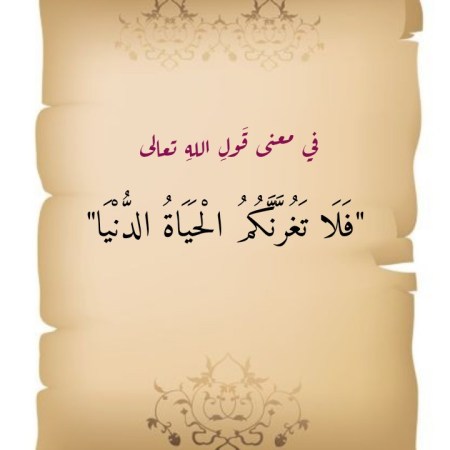 في معنى قَولِ اللهِ تعالى
"فَلَا تَغُرَّنَّكُمُ الْحَيَاةُ الدُّنْيَا"